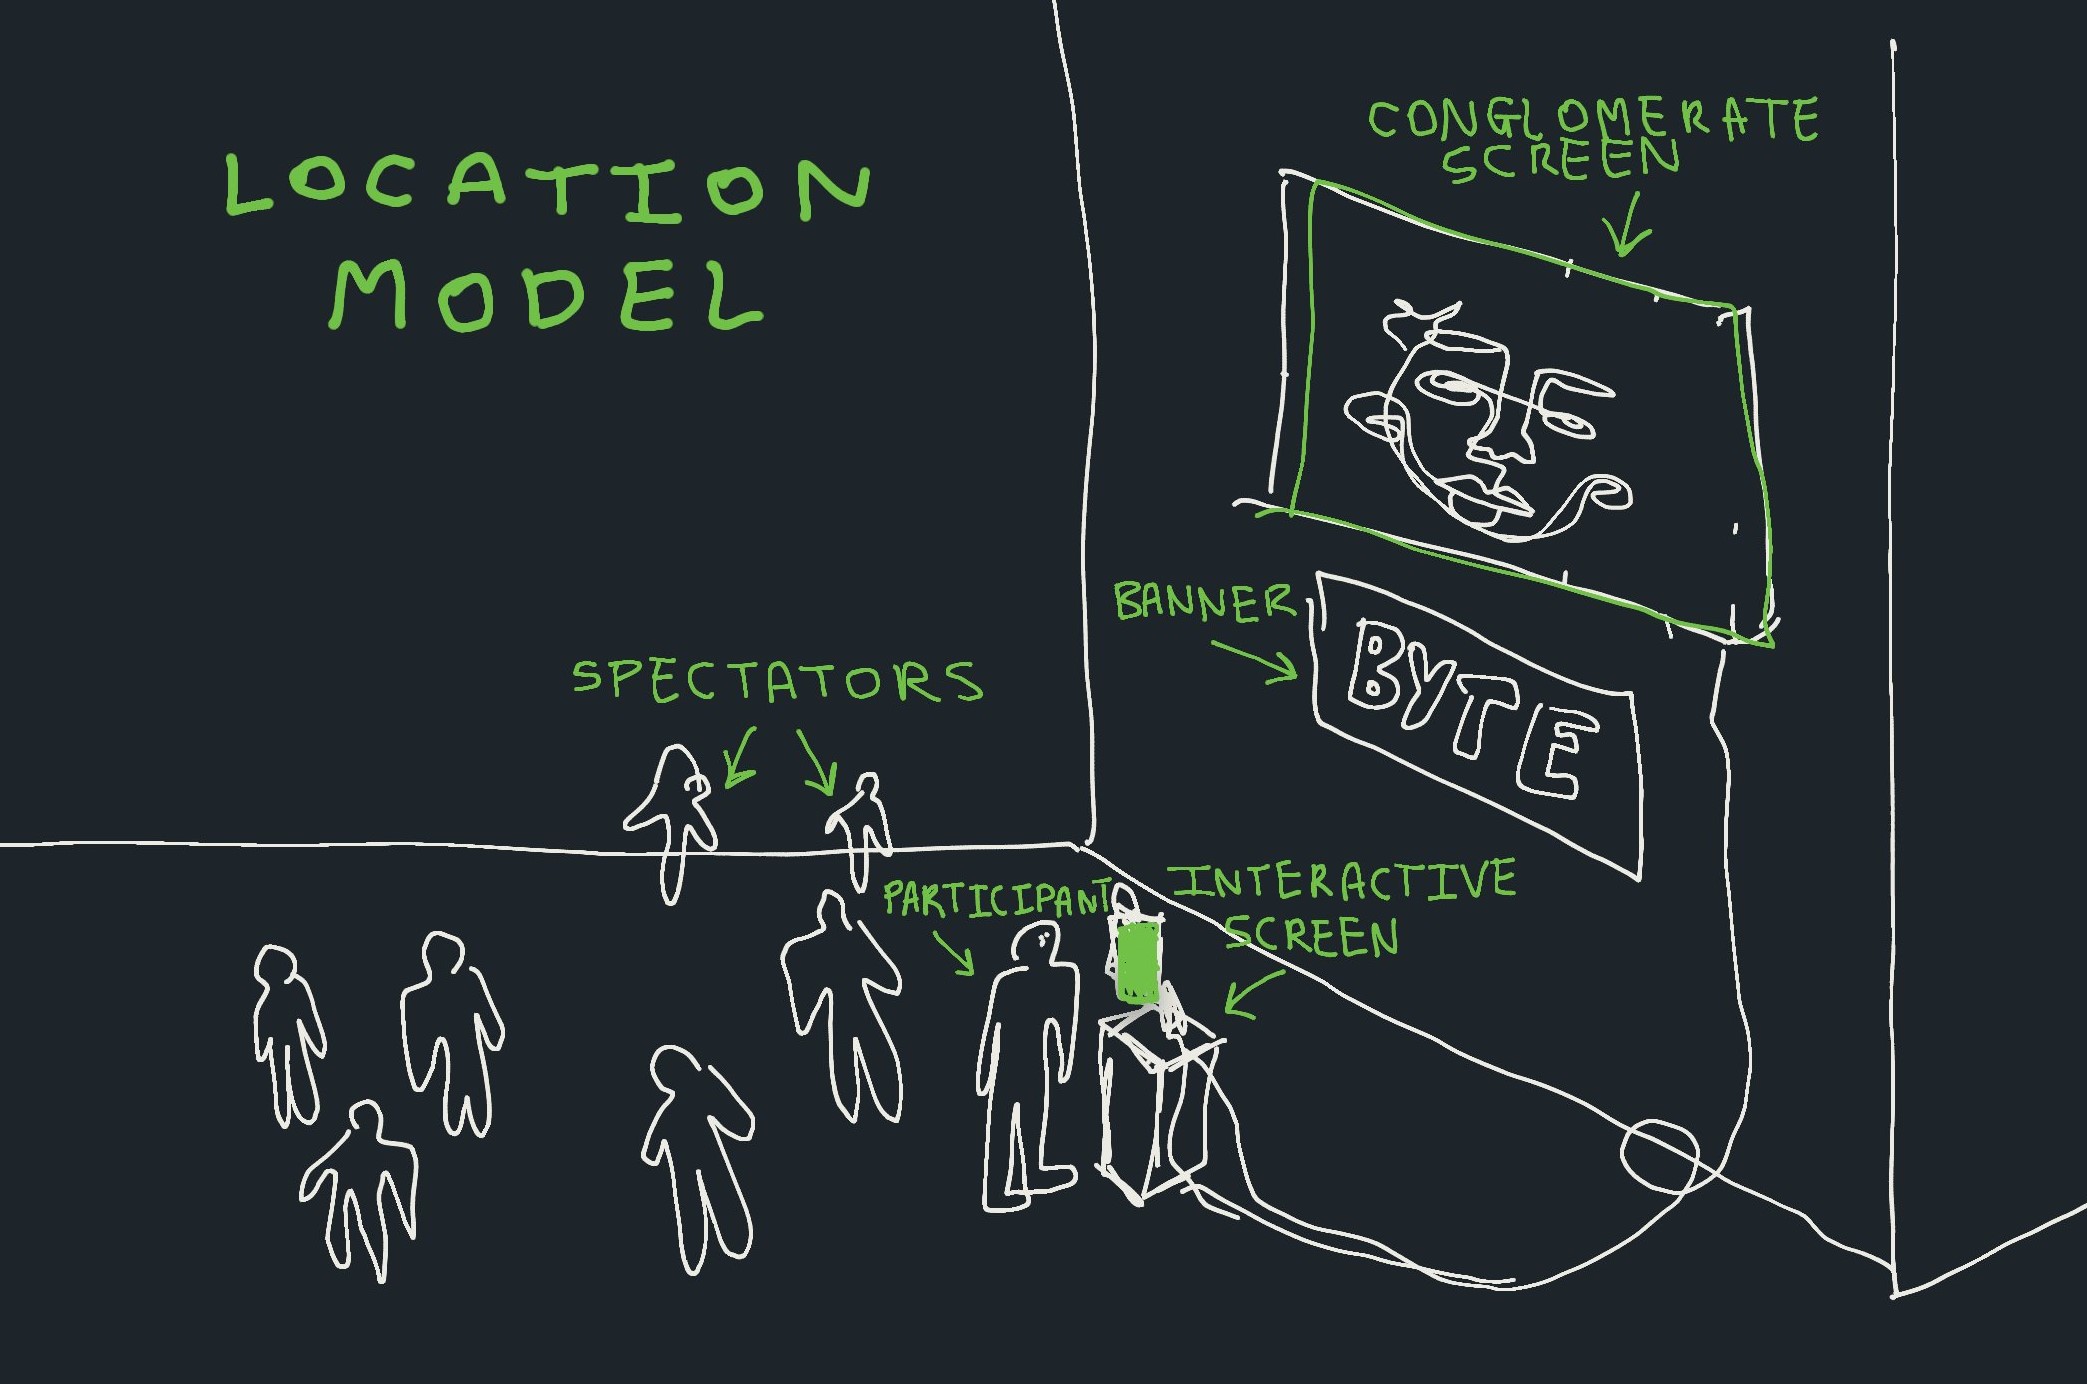 LOCATION
MODEL
CONGLOMERATE
SCREEN
BANNER
BYTE
SPECTATORS
PARTICIPANT
INTERACTIVE
SCREEN